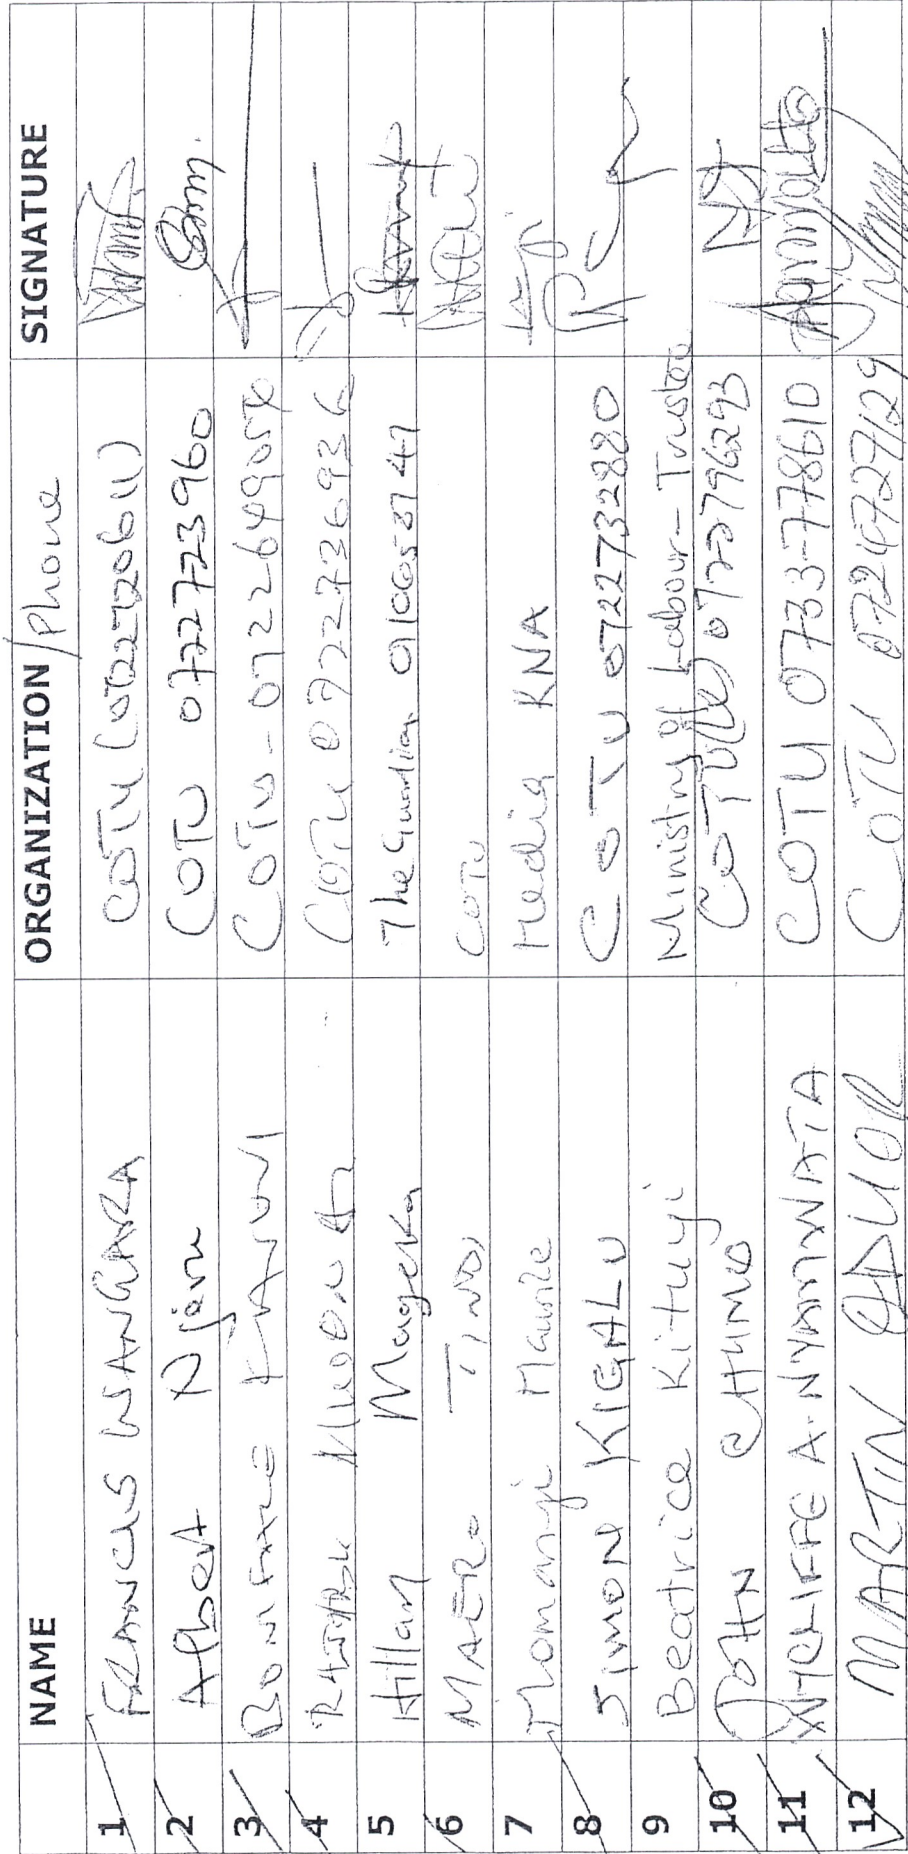 NAME ORGANIZATION/Phone SIGNATURE
1 FRANCIS WANGARA COTU (0722720611)
2 Albert Njeru COTU 0722723960
3 BONIFACE KAVUVI COTU - 0722649057
4 COTU 0722736936
5 Hillary Mageka The Guardian 0100583747
6 COTU
7 Momanyi Maurice Media KNA
8 SIMON KIGALU COTU 0722732880
9 Beatrice Kituyi Ministry of Labour - Trustee
10 JOHN CHUMO COTU(K) 0722796293
11 WYCLIFFE A. NYAMWATA COTU 0733-778610
12 MARTIN ODUOR COTU 0724727129